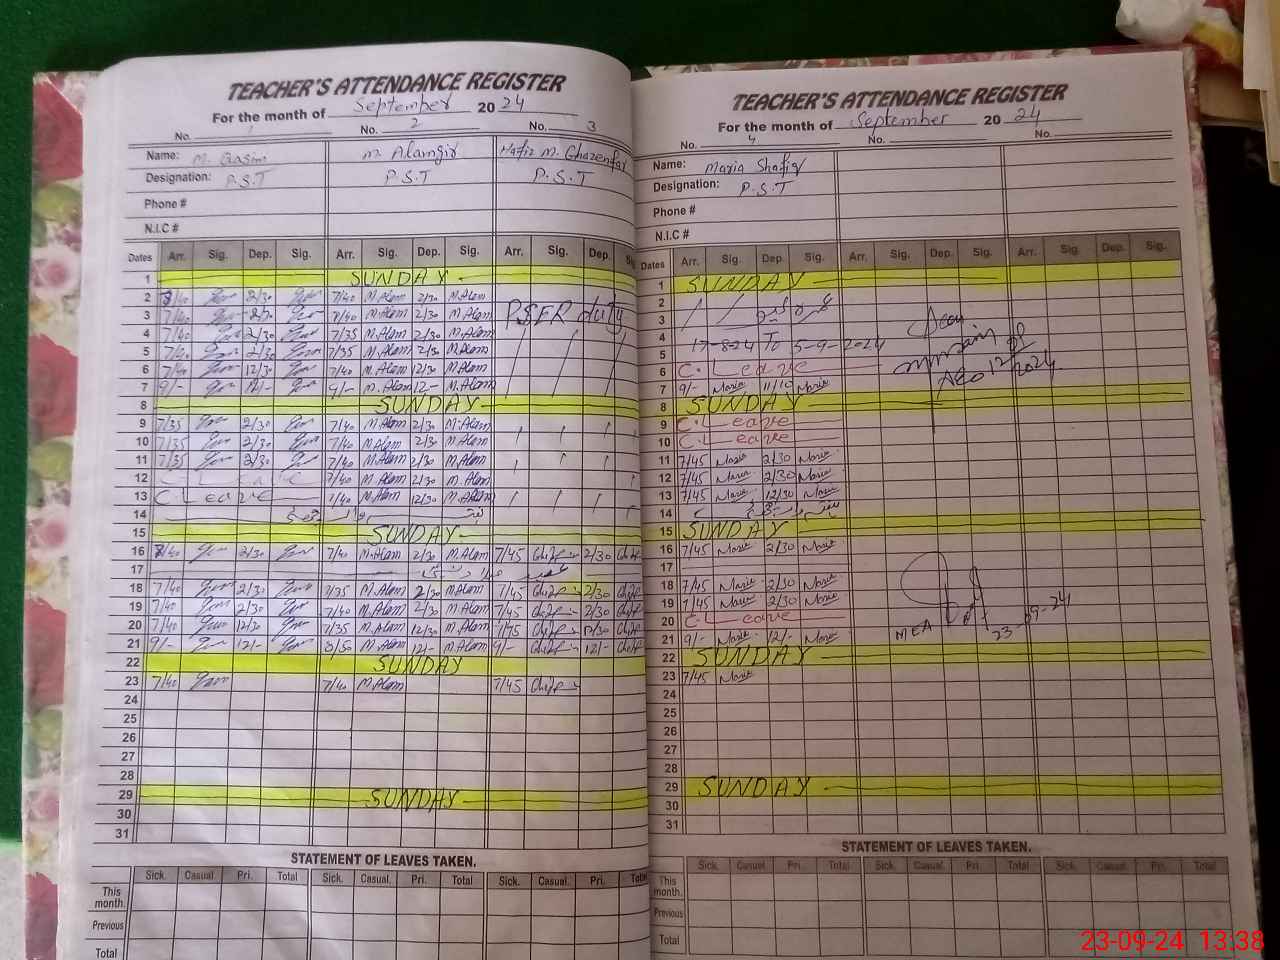 TEACHER'S ATTENDANCE REGISTER
For the month of September 20 24
No. 1 No. 2 No. 3
Name: M. Qasim M. Alamgir Hafiz M. Ghazenfar
Designation: P.S.T P.S.T P.S.T
Phone #
N.I.C #
Dates Arr. Sig. Dep. Sig. Arr. Sig. Dep. Sig. Arr. Sig. Dep.
1 SUNDAY
2 7/40 2/30 7/40 M.Alam 2/30 M.Alam
3 7/40 2/30 7/40 M.Alam 2/30 M.Alam PSER duty
4 7/40 2/30 7/35 M.Alam 2/30 M.Alam
5 2/30 7/35 M.Alam 2/30 M.Alam
6 7/40 12/30 7/40 M.Alam 12/30 M.Alam
7 9/- 12/- 9/- M.Alam 12- M.Alam
8 SUNDAY
9 7/35 2/30 7/40 M.Alam 2/30 M.Alam
10 7/35 2/30 7/40 M.Alam 2/30 M.Alam
11 7/35 2/30 7/40 M.Alam 2/30 M.Alam
12 C.Leave 7/40 M.Alam 2/30 M.Alam
13 C.Leave 7/40 M.Alam 12/30 M.Alam
14
15 SUNDAY
16 7/40 2/30 7/40 M.Alam 2/30 M.Alam 7/45 2/30
17
18 7/40 2/30 7/35 M.Alam 2/30 M.Alam 7/45 2/30
19 7/40 2/30 7/40 M.Alam 2/30 M.Alam 7/45 2/30
20 7/40 12/30 7/35 M.Alam 12/30 M.Alam 12/30
21 9/- 12/- 8/50 M.Alam 12- M.Alam 9/- 12/-
22 SUNDAY
23 7/40 7/40 M.Alam 7/45
24
25
26
27
28
29 SUNDAY
30
31
STATEMENT OF LEAVES TAKEN.
Sick. Casual. Pri. Total Sick. Casual. Pri. Total Sick. Casual. Pri. Total
This month.
Previous
Total
TEACHER'S ATTENDANCE REGISTER
For the month of September 20 24
No. 4 No. No.
Name: Maria Shafiq
Designation: P.S.T
Phone #
N.I.C #
Dates Arr. Sig. Dep. Sig. Arr. Sig. Dep. Sig. Arr. Sig. Dep. Sig.
1 SUNDAY
2
3
4 17-8-24 To 5-9-2024
5
6 C.Leave AEO 12/09/2024
7 9/- Maria 11/10 Maria
8 SUNDAY
9 C.Leave
10 C.Leave
11 7/45 Maria 2/30 Maria
12 7/45 Maria 2/30 Maria
13 7/45 Maria 12/30 Maria
14
15 SUNDAY
16 7/45 Maria 2/30 Maria
17
18 7/45 Maria 2/30 Maria
19 7/45 Maria 2/30 Maria
20 C.Leave MEA 23-09-24
21 9/- Maria 12/- Maria
22 SUNDAY
23 7/45 Maria
24
25
26
27
28
29 SUNDAY
30
31
STATEMENT OF LEAVES TAKEN.
Sick. Casual Pri. Total Sick. Casual. Pri. Total Sick. Casual. Pri. Total
This month.
Previous
Total
23-09-24 13:38